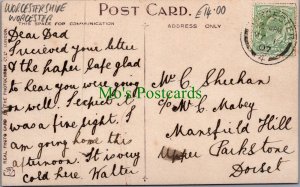 WORCESTERSHIRE
WORCESTER
POST CARD.
£14.00
THIS SPACE FOR COMMUNICATION
ADDRESS ONLY
Dear Dad
I recieved your letter
& the paper safe glad
to hear you were going
on well. I expect it
was a fine sight. I
am going home this
afternoon. It is very
cold here. Walter
Mr C. Sheehan
c/o Mr C. Mabey
Mansfield Hill
Upper Parkstone
Dorset
Mo's Postcards